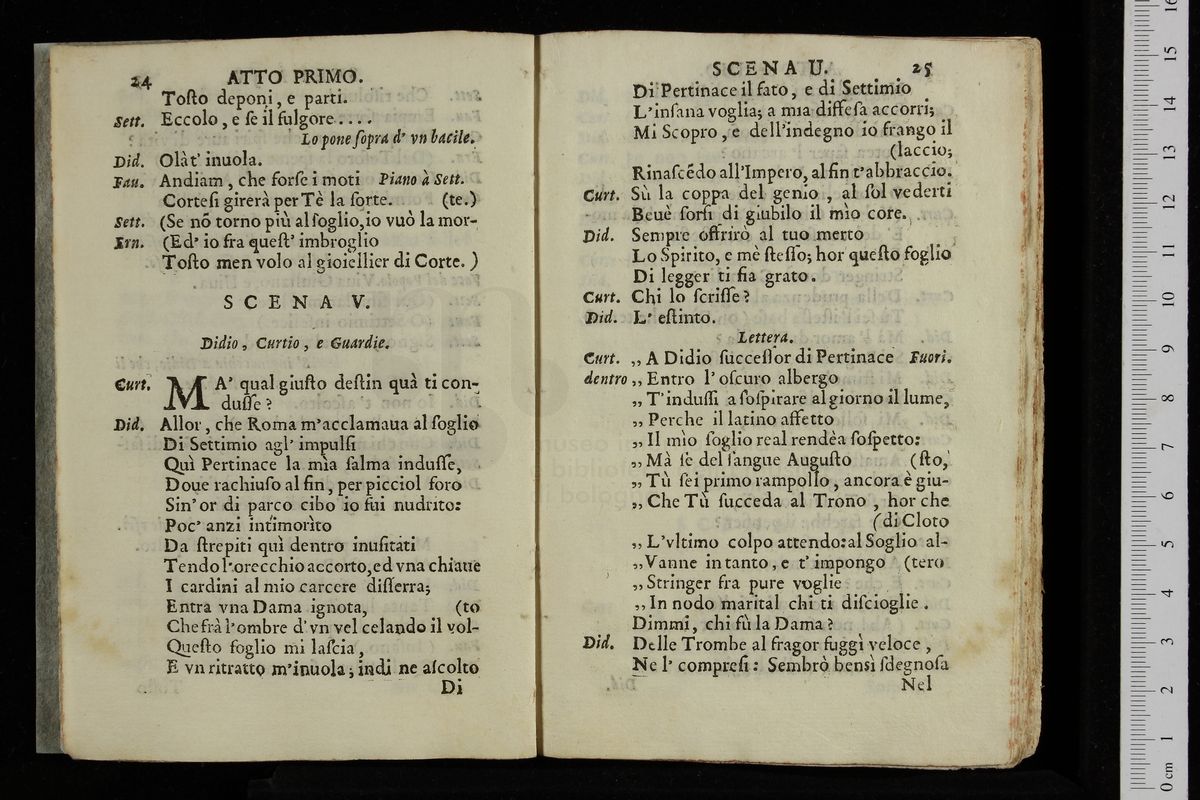 24 ATTO PRIMO.
Toſto deponi, e parti.
Sett. Eccolo, e ſe il fulgore....
Lo pone ſopra d' vn bacile.
Did. Olà t' inuola.
Fau. Andiam, che forſe i moti Piano à Sett.
Corteſi girerà per Tè la ſorte. (te.)
Sett. (Se nō torno più al ſoglio, io vuò la mor-
Ern. (Ed' io fra queſt' imbroglio
Toſto men volo al gioiellier di Corte.)
SCENA V.
Didio, Curtio, e Guardie.
Curt. MA' qual giuſto deſtin quà ti con-
duſſe?
Did. Allor, che Roma m'acclamaua al ſoglio
Di Settimio agl' impulſi
Quì Pertinace la mia ſalma induſſe,
Doue rachiuſo al fin, per picciol foro
Sin' or di parco cibo io fui nudrito:
Poc' anzi intimorìto
Da ſtrepiti quì dentro inuſitati
Tendo l'orecchio accorto, ed vna chiaue
I cardini al mio carcere diſſerra;
Entra vna Dama ignota, (to
Che frà l'ombre d' vn vel celando il vol-
Queſto foglio mi laſcia,
E vn ritratto m'inuola; indi ne aſcolto
Di
SCENA U. 25
Di Pertinace il fato, e di Settimio
L'inſana voglia; a mia diffeſa accorri;
Mi Scopro, e dell'indegno io frango il
(laccio;
Rinaſcēdo all'Impero, al fin t'abbraccio.
Curt. Sù la coppa del genio, al ſol vederti
Beuè ſorſi di giubilo il mìo core.
Did. Sempre offrirò al tuo merto
Lo Spirito, e mè ſteſſo; hor queſto foglio
Di legger ti ſia grato.
Curt. Chi lo ſcriſſe?
Did. L' eſtinto.
Lettera.
Curt. ,, A Didio ſucceſſor di Pertinace Fuori.
dentro ,, Entro l' oſcuro albergo
,, T'induſſi a ſoſpirare al giorno il lume,
,, Perche il latino affetto
,, Il mìo ſoglio real rendèa ſoſpetto:
,, Mà ſe del ſangue Auguſto (ſto,
,, Tù ſei primo rampollo, ancora è giu-
,, Che Tù ſucceda al Trono, hor che
(di Cloto
,, L'vltimo colpo attendo: al Soglio al-
,, Vanne in tanto, e t' impongo (tero
,, Stringer fra pure voglie
,, In nodo marital chi ti diſcioglie.
Dimmi, chi fù la Dama?
Did. Delle Trombe al fragor fuggì veloce,
Ne l' compreſi: Sembrò bensì ſdegnoſa
Nel
museo
e biblio
di bolog
0 cm 1 2 3 4 5 6 7 8 9 10 11 12 13 14 15 16